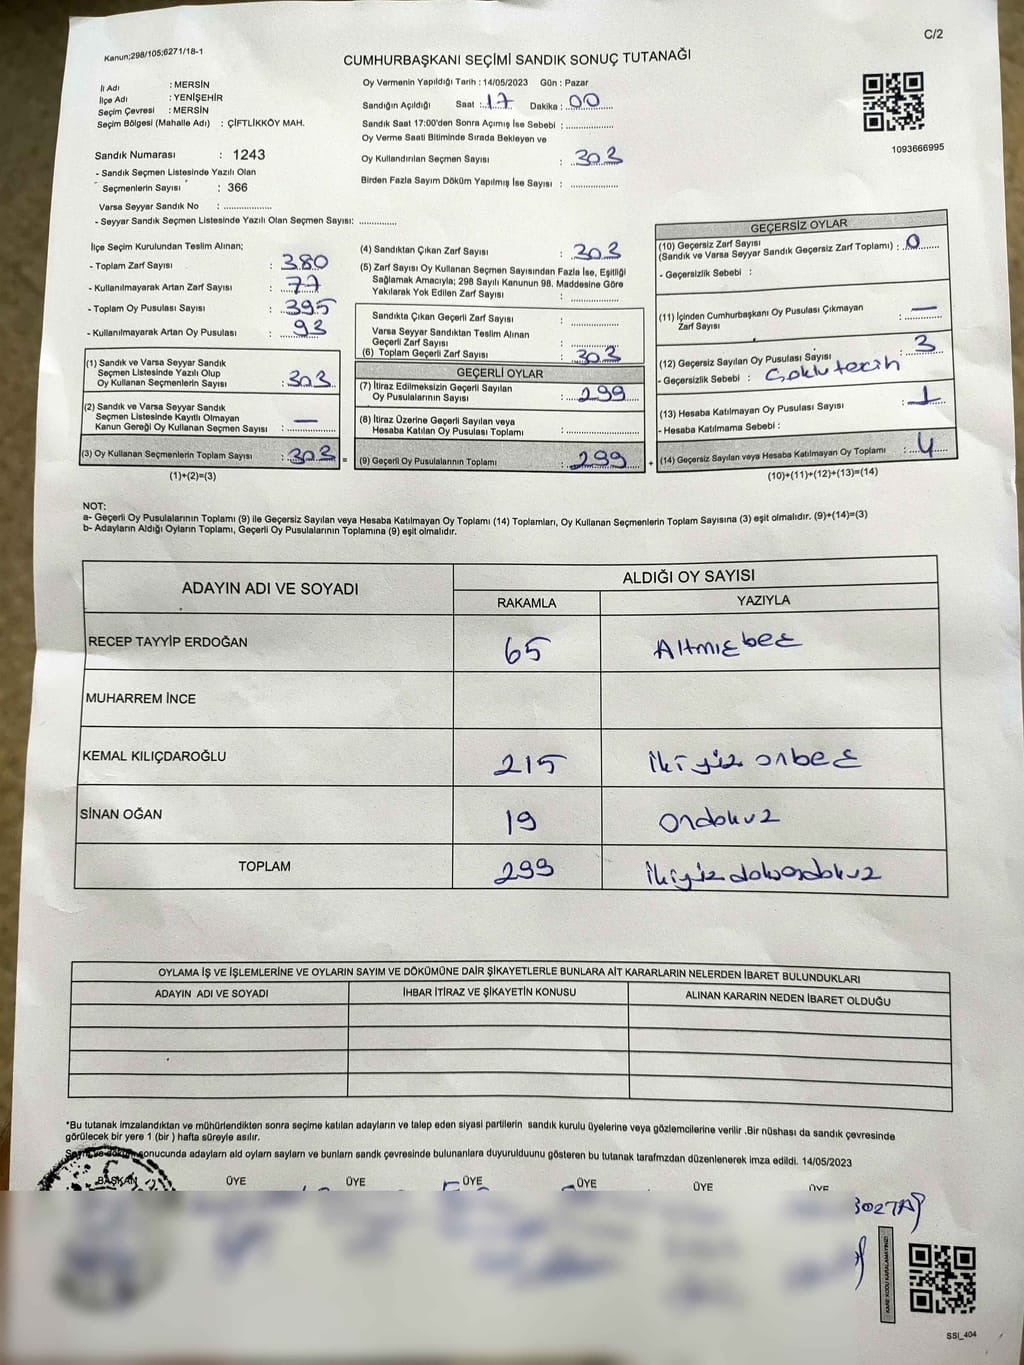 C/2
Kanun;298/105;6271/18-1
CUMHURBAŞKANI SEÇİMİ SANDIK SONUÇ TUTANAĞI
İl Adı : MERSİN
İlçe Adı : YENİŞEHİR
Seçim Çevresi : MERSİN
Seçim Bölgesi (Mahalle Adı) : ÇİFTLİKKÖY MAH.
Sandık Numarası : 1243
- Sandık Seçmen Listesinde Yazılı Olan
Seçmenlerin Sayısı : 366
Varsa Seyyar Sandık No : ..................
- Seyyar Sandık Seçmen Listesinde Yazılı Olan Seçmen Sayısı: ..............
Oy Vermenin Yapıldığı Tarih : 14/05/2023 Gün : Pazar
Sandığın Açıldığı Saat : 17 Dakika : 00
Sandık Saat 17:00'den Sonra Açımış İse Sebebi : ..................
Oy Verme Saati Bitiminde Sırada Bekleyen ve
Oy Kullandırılan Seçmen Sayısı : 303
Birden Fazla Sayım Döküm Yapılmış İse Sayısı : ..................
1093666995
İlçe Seçim Kurulundan Teslim Alınan;
- Toplam Zarf Sayısı : 380
- Kullanılmayarak Artan Zarf Sayısı : 77
- Toplam Oy Pusulası Sayısı : 395
- Kullanılmayarak Artan Oy Pusulası : 93
(1) Sandık ve Varsa Seyyar Sandık
Seçmen Listesinde Yazılı Olup
Oy Kullanan Seçmenlerin Sayısı : 303
(2) Sandık ve Varsa Seyyar Sandık
Seçmen Listesinde Kayıtlı Olmayan
Kanun Gereği Oy Kullanan Seçmen Sayısı : —
(3) Oy Kullanan Seçmenlerin Toplam Sayısı : 303 =
(1)+(2)=(3)
(4) Sandıktan Çıkan Zarf Sayısı : 303
(5) Zarf Sayısı Oy Kullanan Seçmen Sayısından Fazla İse, Eşitliği
Sağlamak Amacıyla; 298 Sayılı Kanunun 98. Maddesine Göre
Yakılarak Yok Edilen Zarf Sayısı : ..................
Sandıkta Çıkan Geçerli Zarf Sayısı : ..................
Varsa Seyyar Sandıktan Teslim Alınan
Geçerli Zarf Sayısı : ..................
(6) Toplam Geçerli Zarf Sayısı : 303
GEÇERLİ OYLAR
(7) İtiraz Edilmeksizin Geçerli Sayılan
Oy Pusulalarının Sayısı : 299
(8) İtiraz Üzerine Geçerli Sayılan veya
Hesaba Katılan Oy Pusulası Toplamı : ..................
(9) Geçerli Oy Pusulalarının Toplamı : 299 +
GEÇERSİZ OYLAR
(10) Geçersiz Zarf Sayısı
(Sandık ve Varsa Seyyar Sandık Geçersiz Zarf Toplamı) : 0
- Geçersizlik Sebebi :
(11) İçinden Cumhurbaşkanı Oy Pusulası Çıkmayan
Zarf Sayısı : —
(12) Geçersiz Sayılan Oy Pusulası Sayısı : 3
- Geçersizlik Sebebi : Çoklu tercih
(13) Hesaba Katılmayan Oy Pusulası Sayısı : 1
- Hesaba Katılmama Sebebi :
(14) Geçersiz Sayılan veya Hesaba Katılmayan Oy Toplamı : 4
(10)+(11)+(12)+(13)=(14)
NOT:
a- Geçerli Oy Pusulalarının Toplamı (9) ile Geçersiz Sayılan veya Hesaba Katılmayan Oy Toplamı (14) Toplamları, Oy Kullanan Seçmenlerin Toplam Sayısına (3) eşit olmalıdır. (9)+(14)=(3)
b- Adayların Aldığı Oyların Toplamı, Geçerli Oy Pusulalarının Toplamına (9) eşit olmalıdır.
ADAYIN ADI VE SOYADI
ALDIĞI OY SAYISI
RAKAMLA YAZIYLA
RECEP TAYYİP ERDOĞAN 65 Altmışbeş
MUHARREM İNCE
KEMAL KILIÇDAROĞLU 215 ikiyüz onbeş
SİNAN OĞAN 19 ondokuz
TOPLAM 299
OYLAMA İŞ VE İŞLEMLERİNE VE OYLARIN SAYIM VE DÖKÜMÜNE DAİR ŞİKAYETLERLE BUNLARA AİT KARARLARIN NELERDEN İBARET BULUNDUKLARI
ADAYIN ADI VE SOYADI İHBAR İTİRAZ VE ŞİKAYETİN KONUSU ALINAN KARARIN NEDEN İBARET OLDUĞU
*Bu tutanak imzalandıktan ve mühürlendikten sonra seçime katılan adayların ve talep eden siyasi partilerin sandık kurulu üyelerine veya gözlemcilerine verilir .Bir nüshası da sandık çevresinde
görülecek bir yere 1 (bir ) hafta süreyle asılır.
sonucunda adayların ald oylarn saylarn ve bunlarn sandk çevresinde bulunanlara duyurulduunu gösteren bu tutanak tarafmzdan düzenlenerek imza edildi. 14/05/2023
BAŞKAN ÜYE ÜYE ÜYE ÜYE ÜYE ÜYE
SSI_404